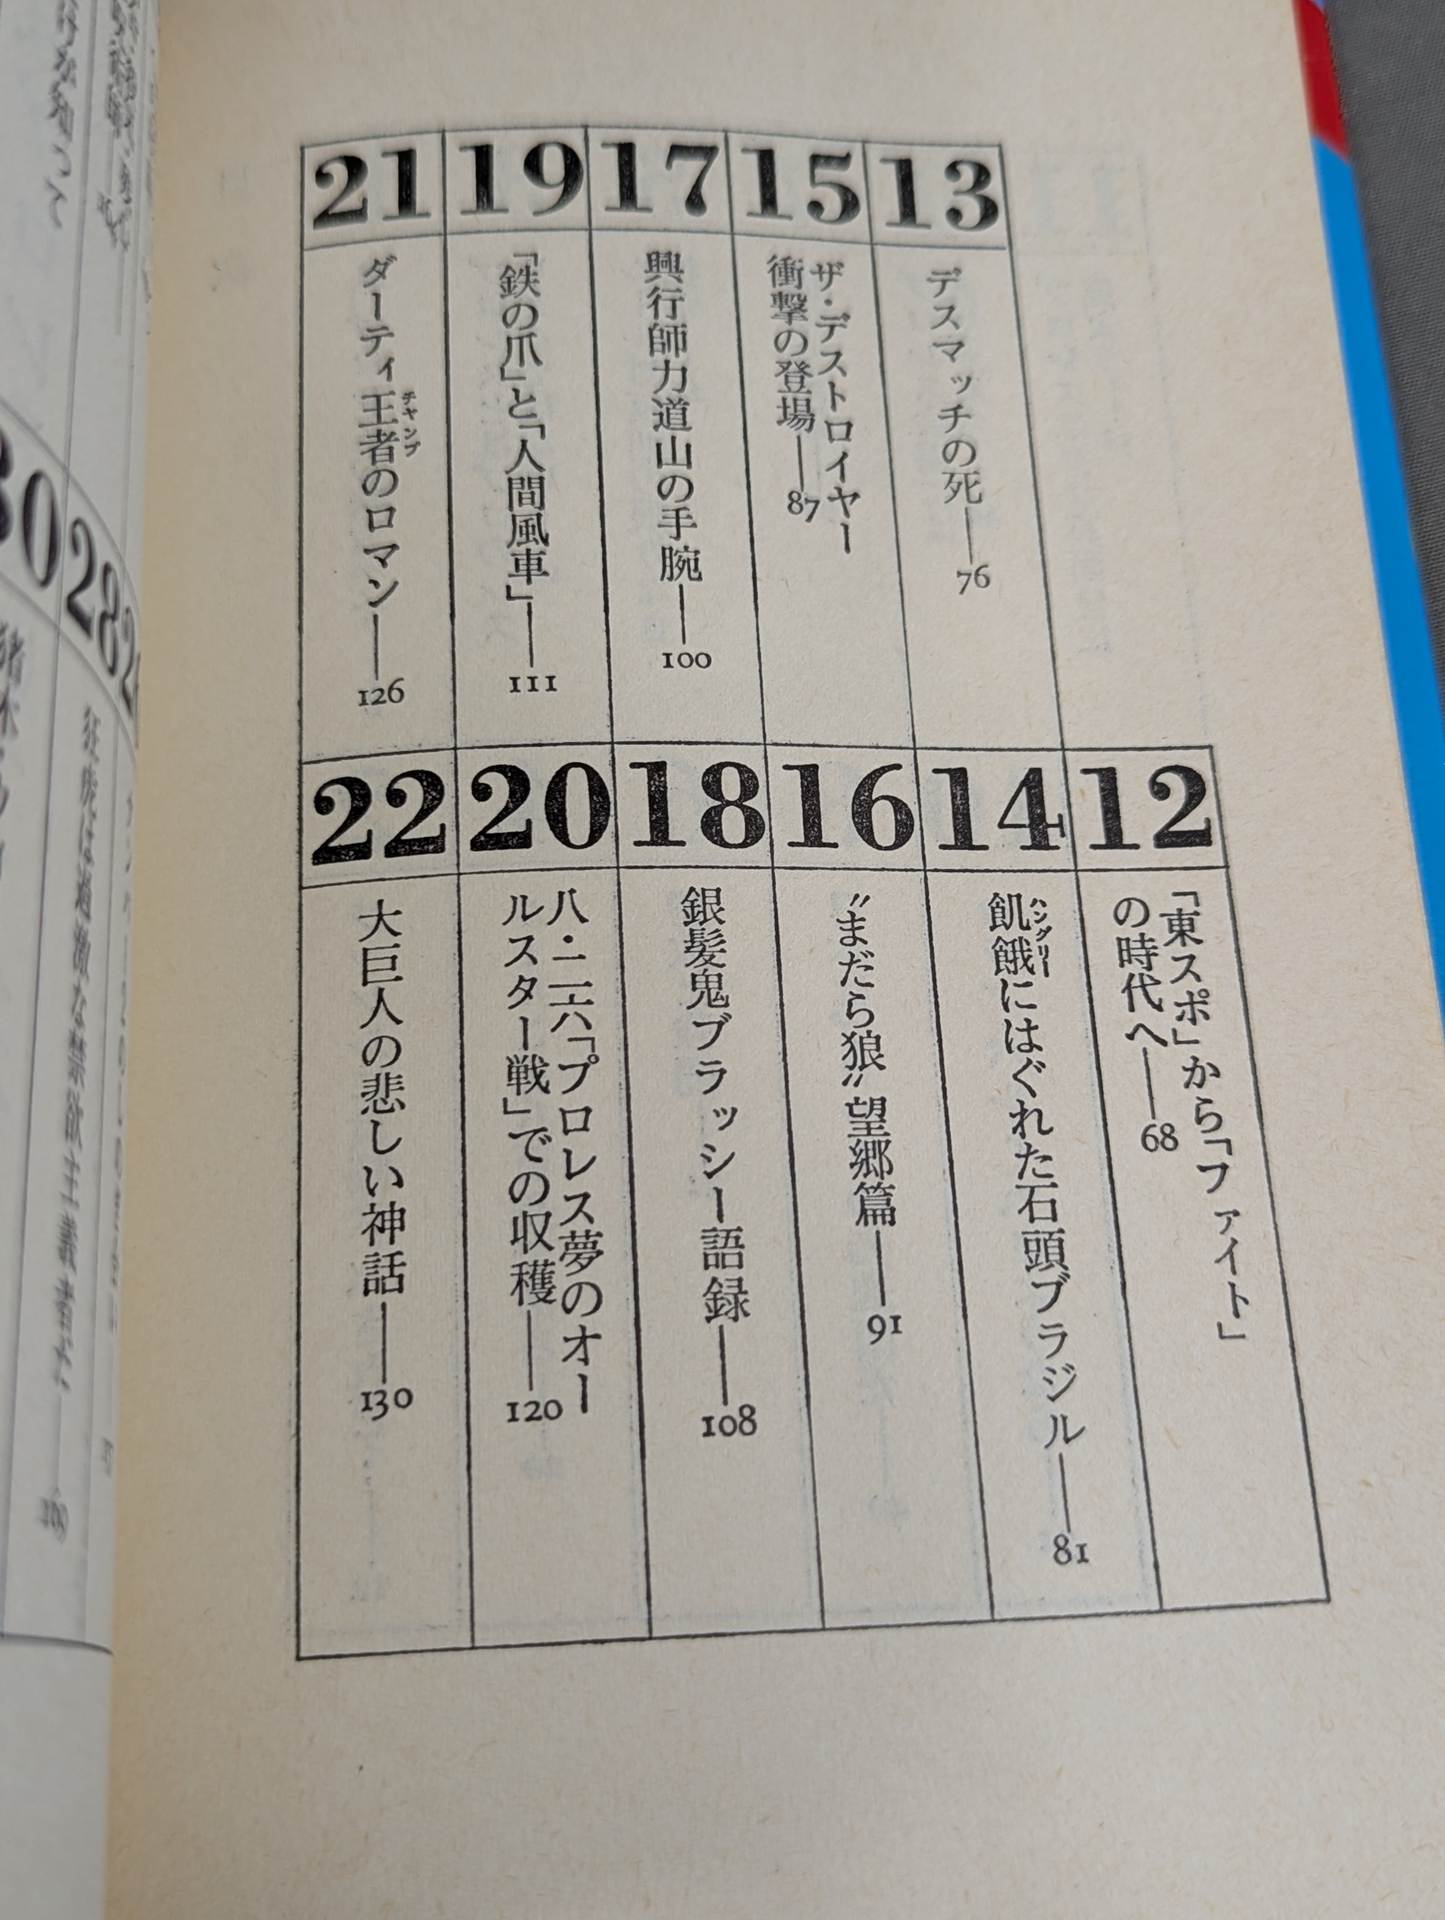 12
「東スポ」から「ファイト」
の時代へ——68
13
デスマッチの死——76
14
飢餓にはぐれた石頭ブラジル——81
ハングリー
15
ザ・デストロイヤー
衝撃の登場——87
16
〝まだら狼〟望郷篇——91
17
興行師力道山の手腕——100
18
銀髪鬼ブラッシー語録——108
19
「鉄の爪」と「人間風車」——111
20
八・二六「プロレス夢のオー
ルスター戦」での収穫——120
21
ダーティ王者のロマン——126
チャンプ
22
大巨人の悲しい神話——130
28
狂虎は過激な禁欲主義者だ
30